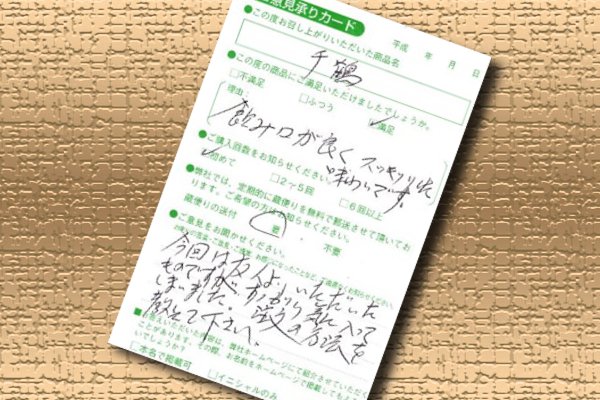 意見承りカード
平成 年 月 日
●この度お召し上がりいただいた商品名
千鶴
●この度の商品にご満足いただけましたでしょうか。
□不満足 □ふつう □満足
理由：
飲み口が良く スッキリした
味わいです。
●ご購入回数をお知らせください。
□初めて □2～5回 □6回以上
●弊社では、定期的に蔵便りを無料で郵送させて頂いてお
ります。ご希望の方はお知らせください。
蔵便りの送付 要 ・ 不要
●ご意見をお聞かせください。
今回は友人よりいただいた
ものですが すっかり気に入って
しまいました。注文の方法を
教えて下さい。
弊社ホームページにて紹介させていただく
ことがあります。その際、お名前をホームページで掲載しても
いでしょうか？
□本名で掲載可 □イニシャルのみ